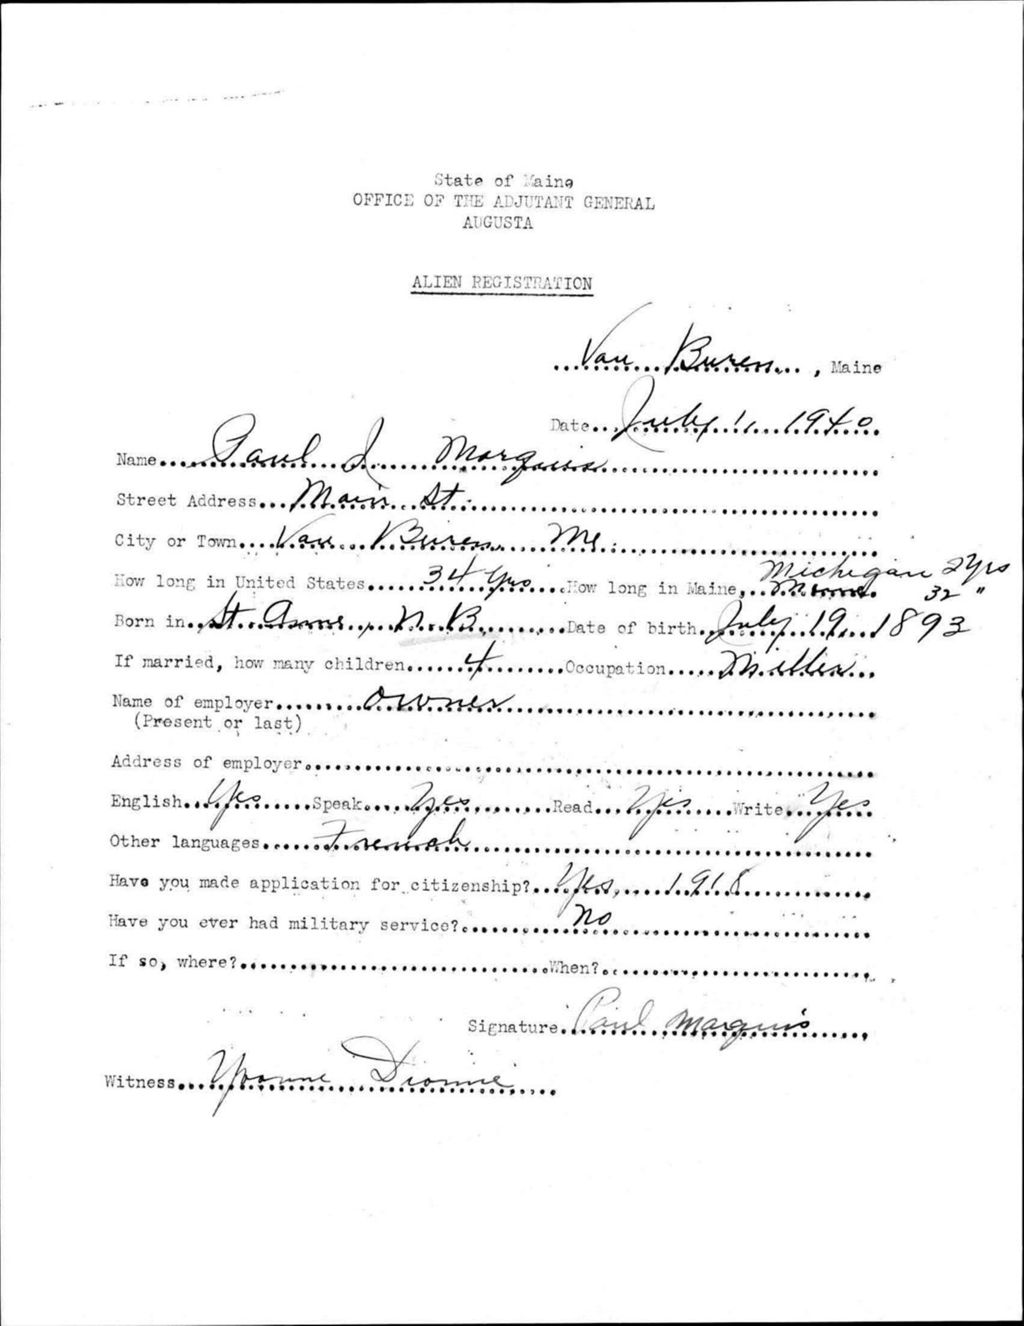 State of Maine
OFFICE OF THE ADJUTANT GENERAL
AUGUSTA
ALIEN REGISTRATION
Van Buren, Maine
Date July 1, 1940
Name Paul J Marquis
Street Address Main St.
City or Town Van Buren Me.
Michigan 2 Yrs
How long in United States 34 Yrs How long in Maine, Maine 32 "
Born in St. Anne, N. B. Date of birth July 19, 1893
If married, how many children 4 Occupation Miller
Name of employer Owner
(Present or last)
Address of employer
English Yes Speak Yes Read Yes Write Yes
Other languages French
Have you made application for citizenship? Yes, 1918
Have you ever had military service? No
If so, where? When?
Signature Paul Marquis
Witness Yvonne Dionne